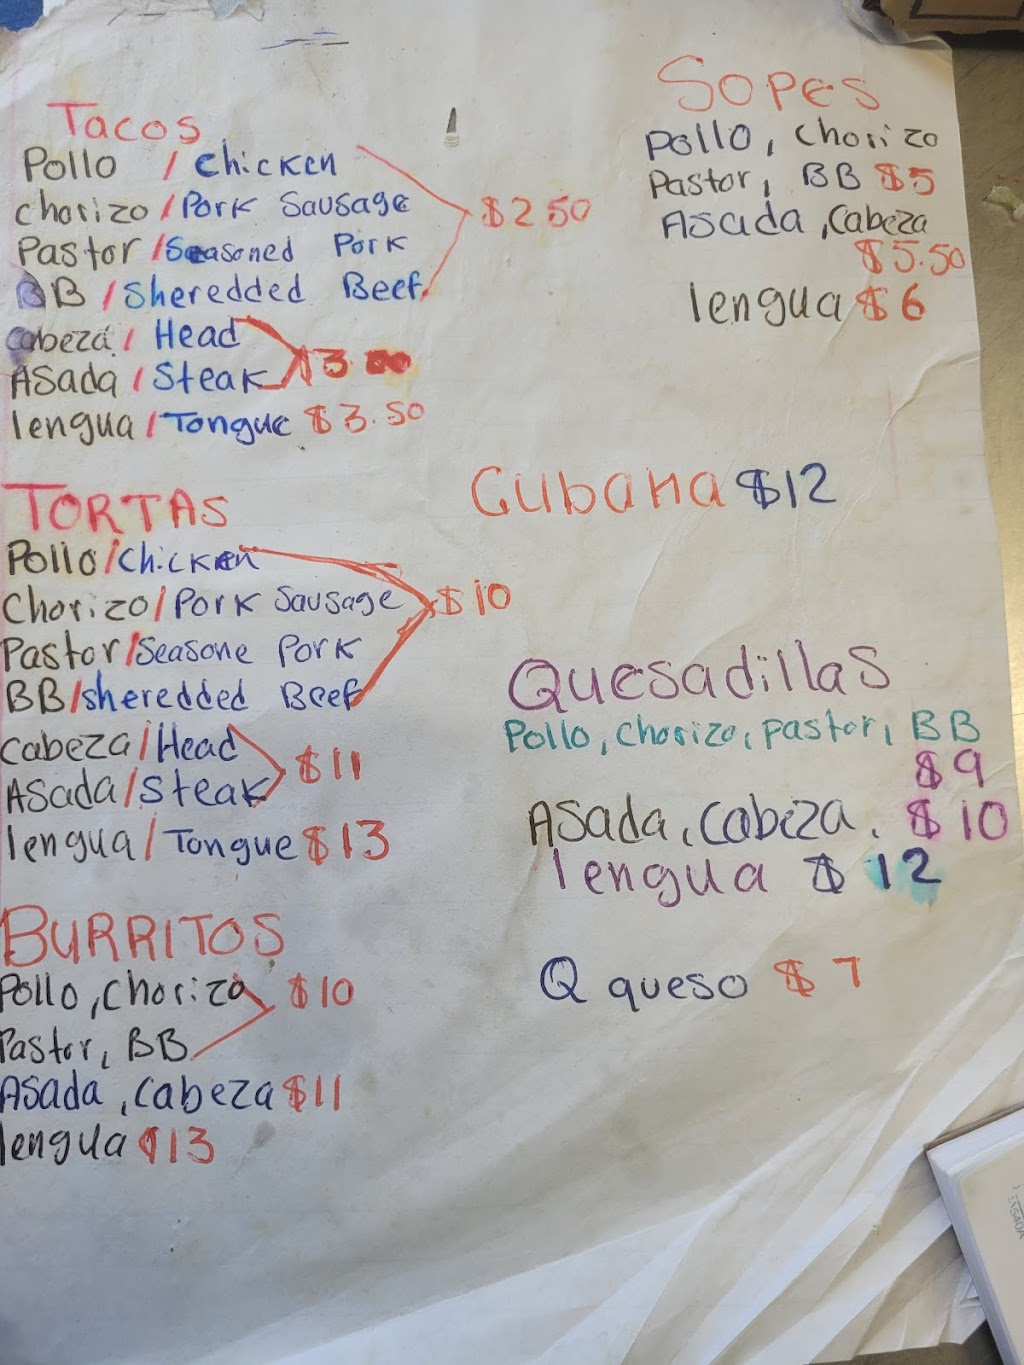 Tacos
Pollo / Chicken
Chorizo / Pork Sausage
$2.50
Pastor / Seasoned Pork
BB / Sheredded Beef
Cabeza / Head
$3.00
Asada / Steak
lengua / Tongue $3.50
TORTAS
Pollo / Chicken
Chorizo / Pork Sausage
$10
Pastor / Seasone Pork
BB / sheredded Beef
Cabeza / Head
$11
Asada / Steak
lengua / Tongue $13
BURRITOS
Pollo, Chorizo $10
Pastor, BB
Asada, Cabeza $11
lengua $13
Sopes
Pollo, Chorizo
Pastor, BB $5
Asada, Cabeza
$5.50
lengua $6
Cubana $12
Quesadillas
Pollo, Chorizo, pastor, BB
$9
Asada, Cabeza. $10
lengua $12
Q queso $7